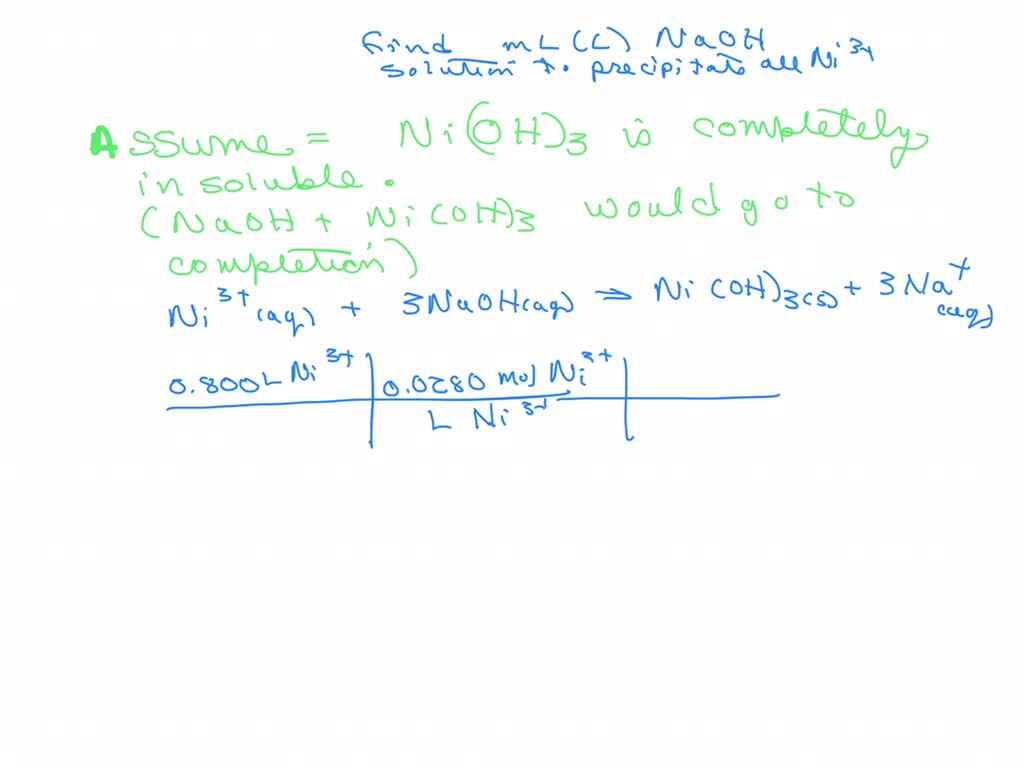 Find mL (L) NaOH
solution to precipitate all Ni³⁺
Assume = Ni(OH)₃ is completely
insoluble.
(NaOH + Ni(OH)₃ would go to
completion)
Ni³⁺(aq) + 3NaOH(aq) → Ni(OH)₃(s) + 3Na⁺(aq)
0.800L Ni³⁺ | 0.0280 mol Ni³⁺
L Ni³⁺